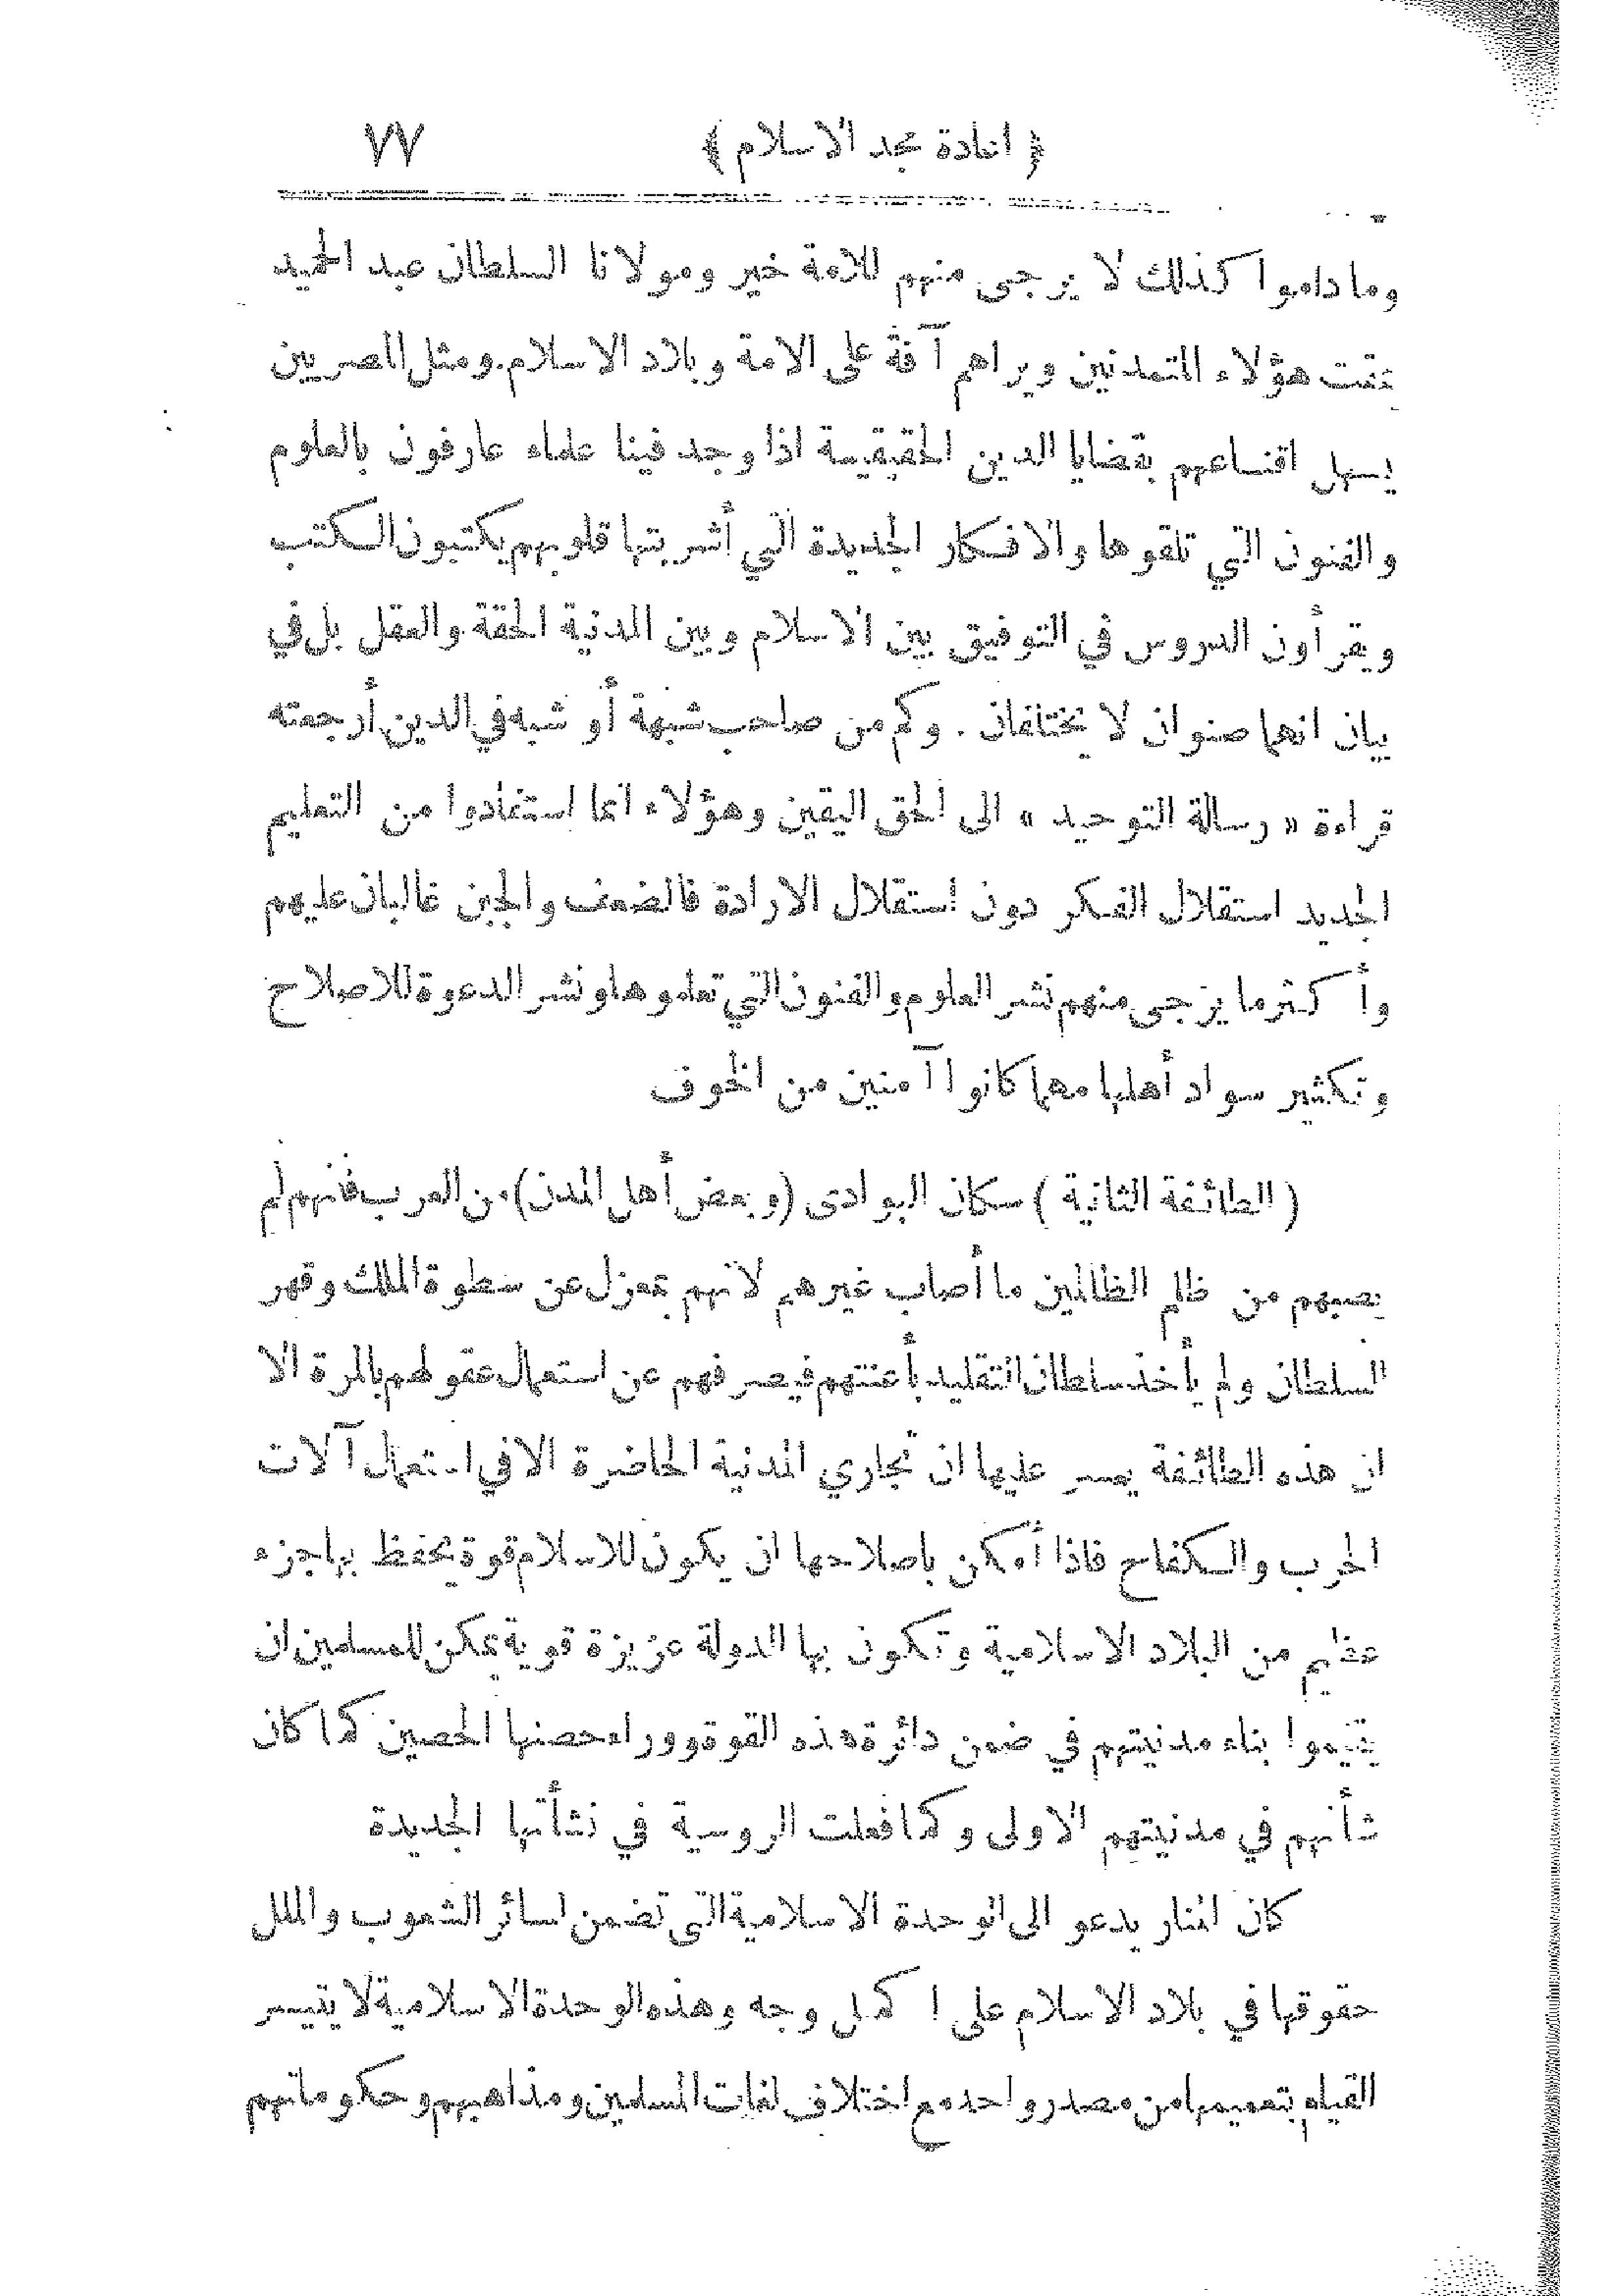 ﴿ اعادة مجد الاسلام ﴾ ٧٧
وما داموا كذلك لا يرجى منهم للامة خير ومولانا السلطان عبد الحميد
يمقت هؤلاء المتمدنين ويراهم آفة على الامة وبلاد الاسلام. ومثل المصريين
يسهل اقناعهم بقضايا الدين الحقيقية اذا وجد فينا علماء عارفون بالعلوم
والفنون التي تلقوها والافكار الجديدة التي أشربتها قلوبهم يكتبون الكتب
ويقرأون الدروس في التوفيق بين الاسلام وبين المدنية الحقة والعقل بل في
بيان انهما صنوان لا يختلفان . وكم من صاحب شبهة أو شبه في الدين أرجعته
قراءة « رسالة التوحيد » الى الحق اليقين وهؤلاء انما استفادوا من التعليم
الجديد استقلال الفكر دون استقلال الارادة فالضعف والجبن غالبان عليهم
وأكثر ما يرجى منهم نشر العلوم والفنون التي تعلموها ونشر الدعوة للاصلاح
وتكثير سواد أهلها مهما كانوا آمنين من الخوف
( الطائفة الثانية ) سكان البوادى (وبعض أهل المدن) من العرب فانهم لم
يصبهم من ظلم الظالمين ما أصاب غيرهم لانهم بمعزل عن سطوة الملك وقهر
السلطان ولم يأخذ سلطان التقليد بأعنتهم فيصرفهم عن استعمال عقولهم بالمرة الا
ان هذه الطائفة يعسر عليها ان تجاري المدنية الحاضرة الا في استعمال آلات
الحرب والكفاح فاذا أمكن باصلاحها ان يكون للاسلام قوة يحفظ بها جزء
عظيم من البلاد الاسلامية وتكون بها الدولة عزيزة قوية يمكن للمسلمين ان
يقيموا بناء مدنيتهم في ضمن دائرة هذه القوة ووراء حصنها الحصين كما كان
شأنهم في مدنيتهم الاولى وكما فعلت الروسية في نشأتها الجديدة
كان المنار يدعو الى الوحدة الاسلامية التى تضمن لسائر الشعوب والملل
حقوقها في بلاد الاسلام على اكمل وجه وهذه الوحدة الاسلامية لا يتيسر
القيام بتعميمها من مصدر واحد مع اختلاف لغات المسلمين ومذاهبهم وحكوماتهم